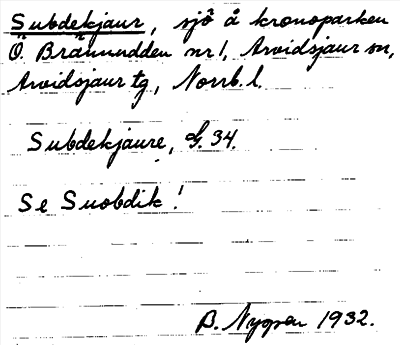 Subdekjaur, sjö å kronoparken
Ö. Brännudden nr 1, Arvidsjaur sn,
Arvidsjaur tg, Norrb. l.
Subdekjaure, G. 34.
Se Suobdik!
B. Nygren 1932.